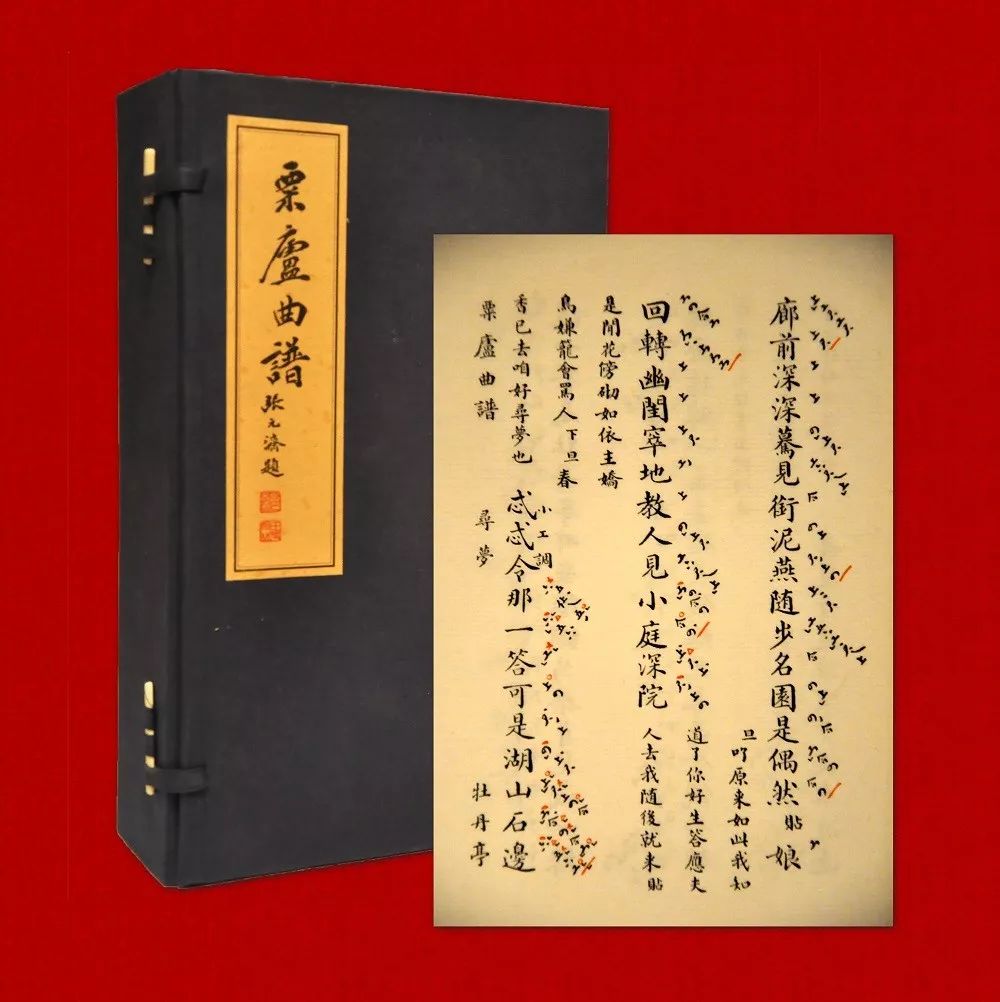 粟廬曲譜
張元濟題
廊前深深驀見銜泥燕随步名園是偶然貼娘
旦吖原來如此我知
道了你好生答應夫
回轉幽閨窣地教人見小庭深院人去我随後就來貼
是閒花傍砌如依主嬌
鳥嫌籠會罵人下旦春
香已去咱好尋夢也忒忒令那一答可是湖山石邊
小工調
粟廬曲譜 尋夢 牡丹亭